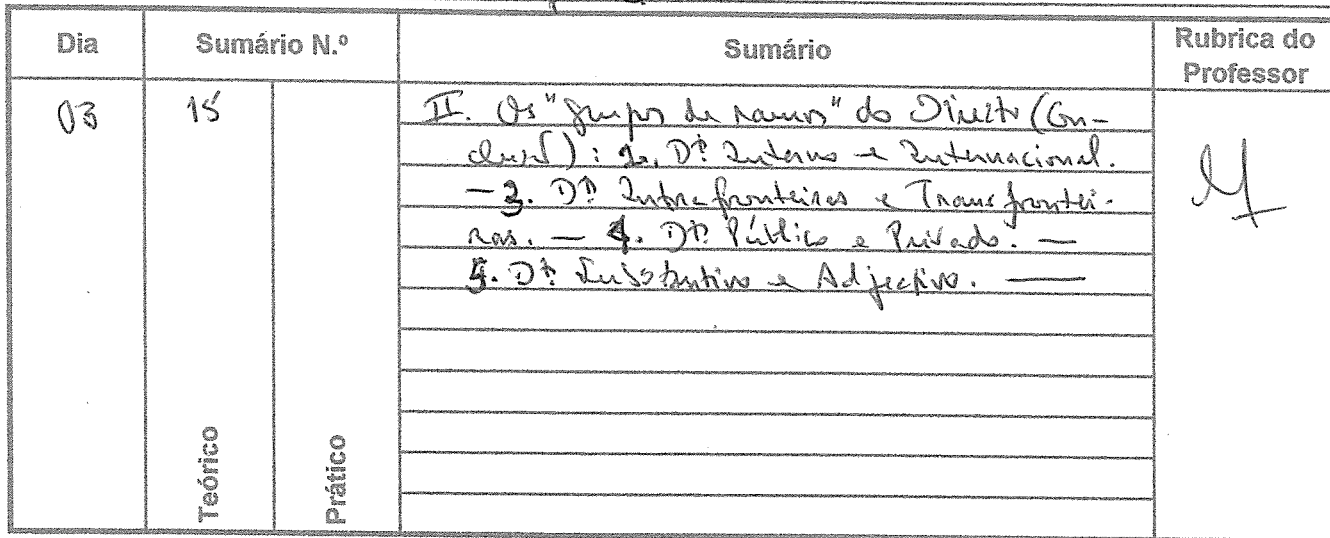 Dia
Sumário N.º
Sumário
Rubrica do
Professor
03
15
II. Os "grupos de ramos" do Direito (Con-
clusão): 2. Dt.º Interno e Internacional.
— 3. Dt.º Intrafronteiras e Transfrontei-
ras. — 4. Dt.º Público e Privado. —
5. Dt.º Substantivo e Adjectivo. —
Teórico
Prático